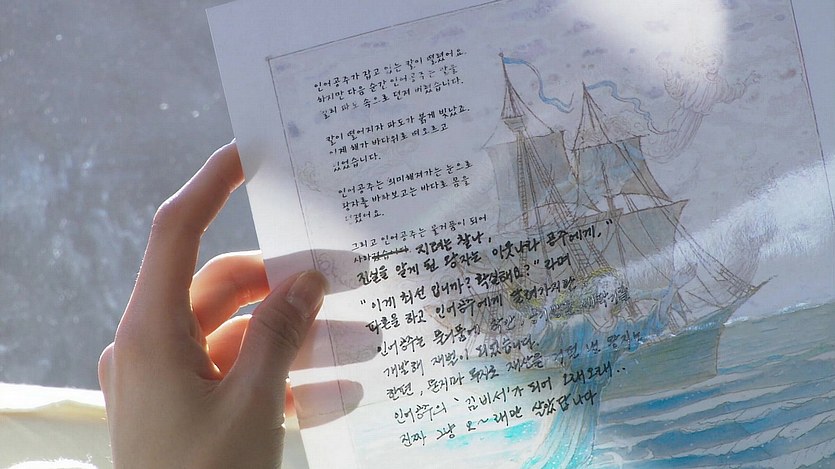 인어공주가 잡고 있는 칼이 떨렸어요.
하지만 다음 순간 인어공주는 칼을
멀리 파도 속으로 던져 버렸습니다.
칼이 떨어지자 파도가 붉게 빛났죠.
이제 해가 바다위로 떠오르고
있었습니다.
인어공주는 희미해져가는 눈으로
왕자를 바라보고는 바다로 몸을
던졌어요.
그리고 인어공주는 물거품이 되어
사라졌습니다 지려는 찰나,
진실을 알게 된 왕자는 이웃나라 공주에게,"
"이게 최선 입니까? 확실해요?" 라며
파혼을 하고 인어공주에게 달려가지만
인어공주는 물거품에
개발해 재벌이 되었습니다.
한편, 묻지마 투자로 재산을 왕자는
인어공주의 '김비서'가 되어 오래오래..
진짜 그냥 오~래만 살았답니다